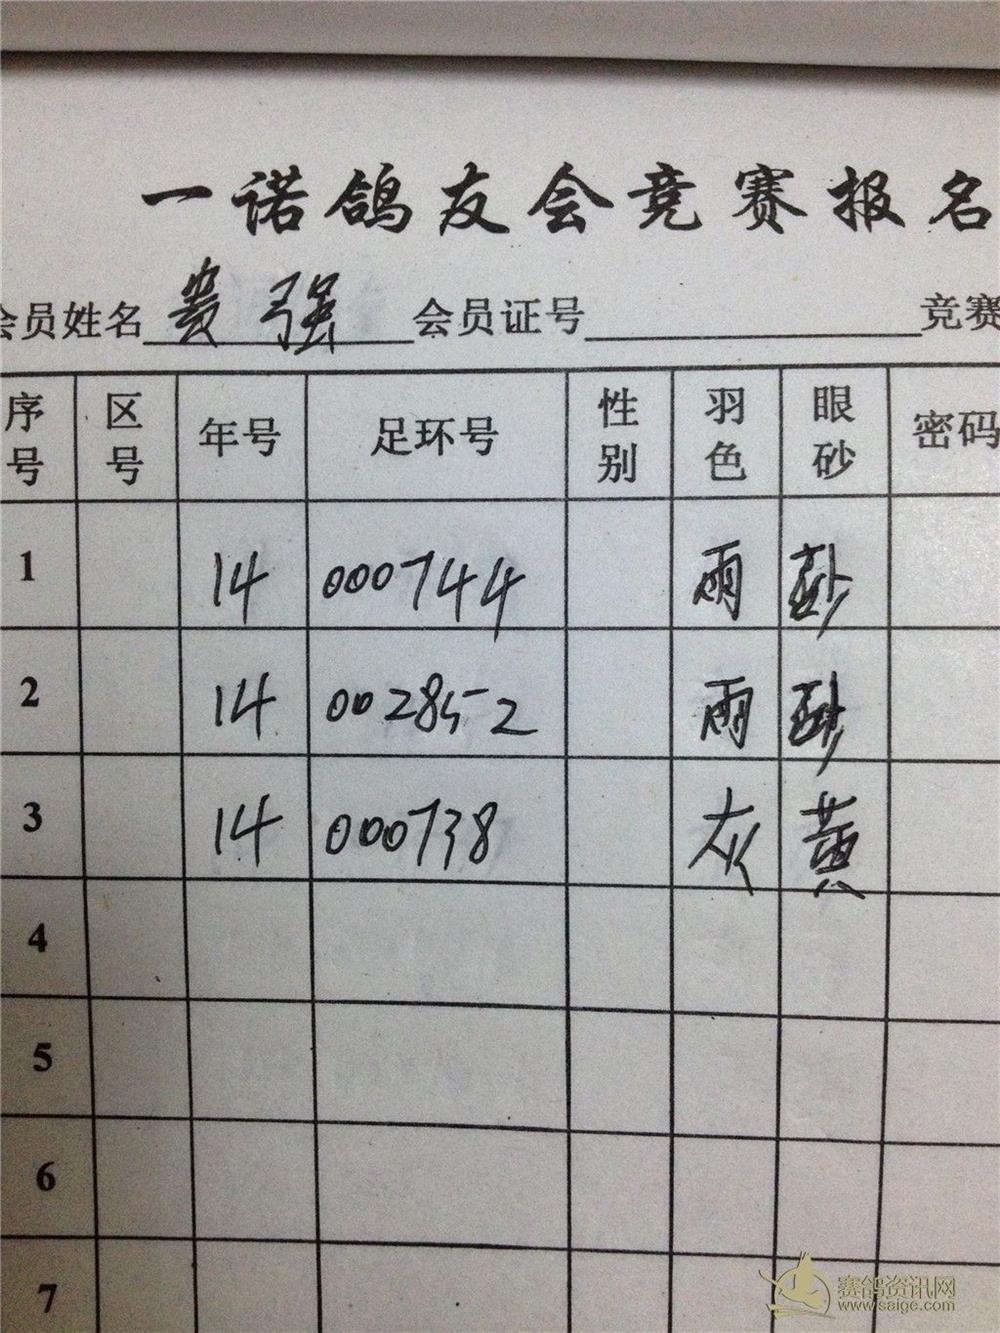 一诺鸽友会竞赛报名
会员姓名 袁强 会员证号 竞赛
序号 区号 年号 足环号 性别 羽色 眼砂 密码
1 14 000744 雨
2 14 002852 雨
3 14 000738 灰 黄
4
5
6
7
赛鸽资讯网
www.saige.com